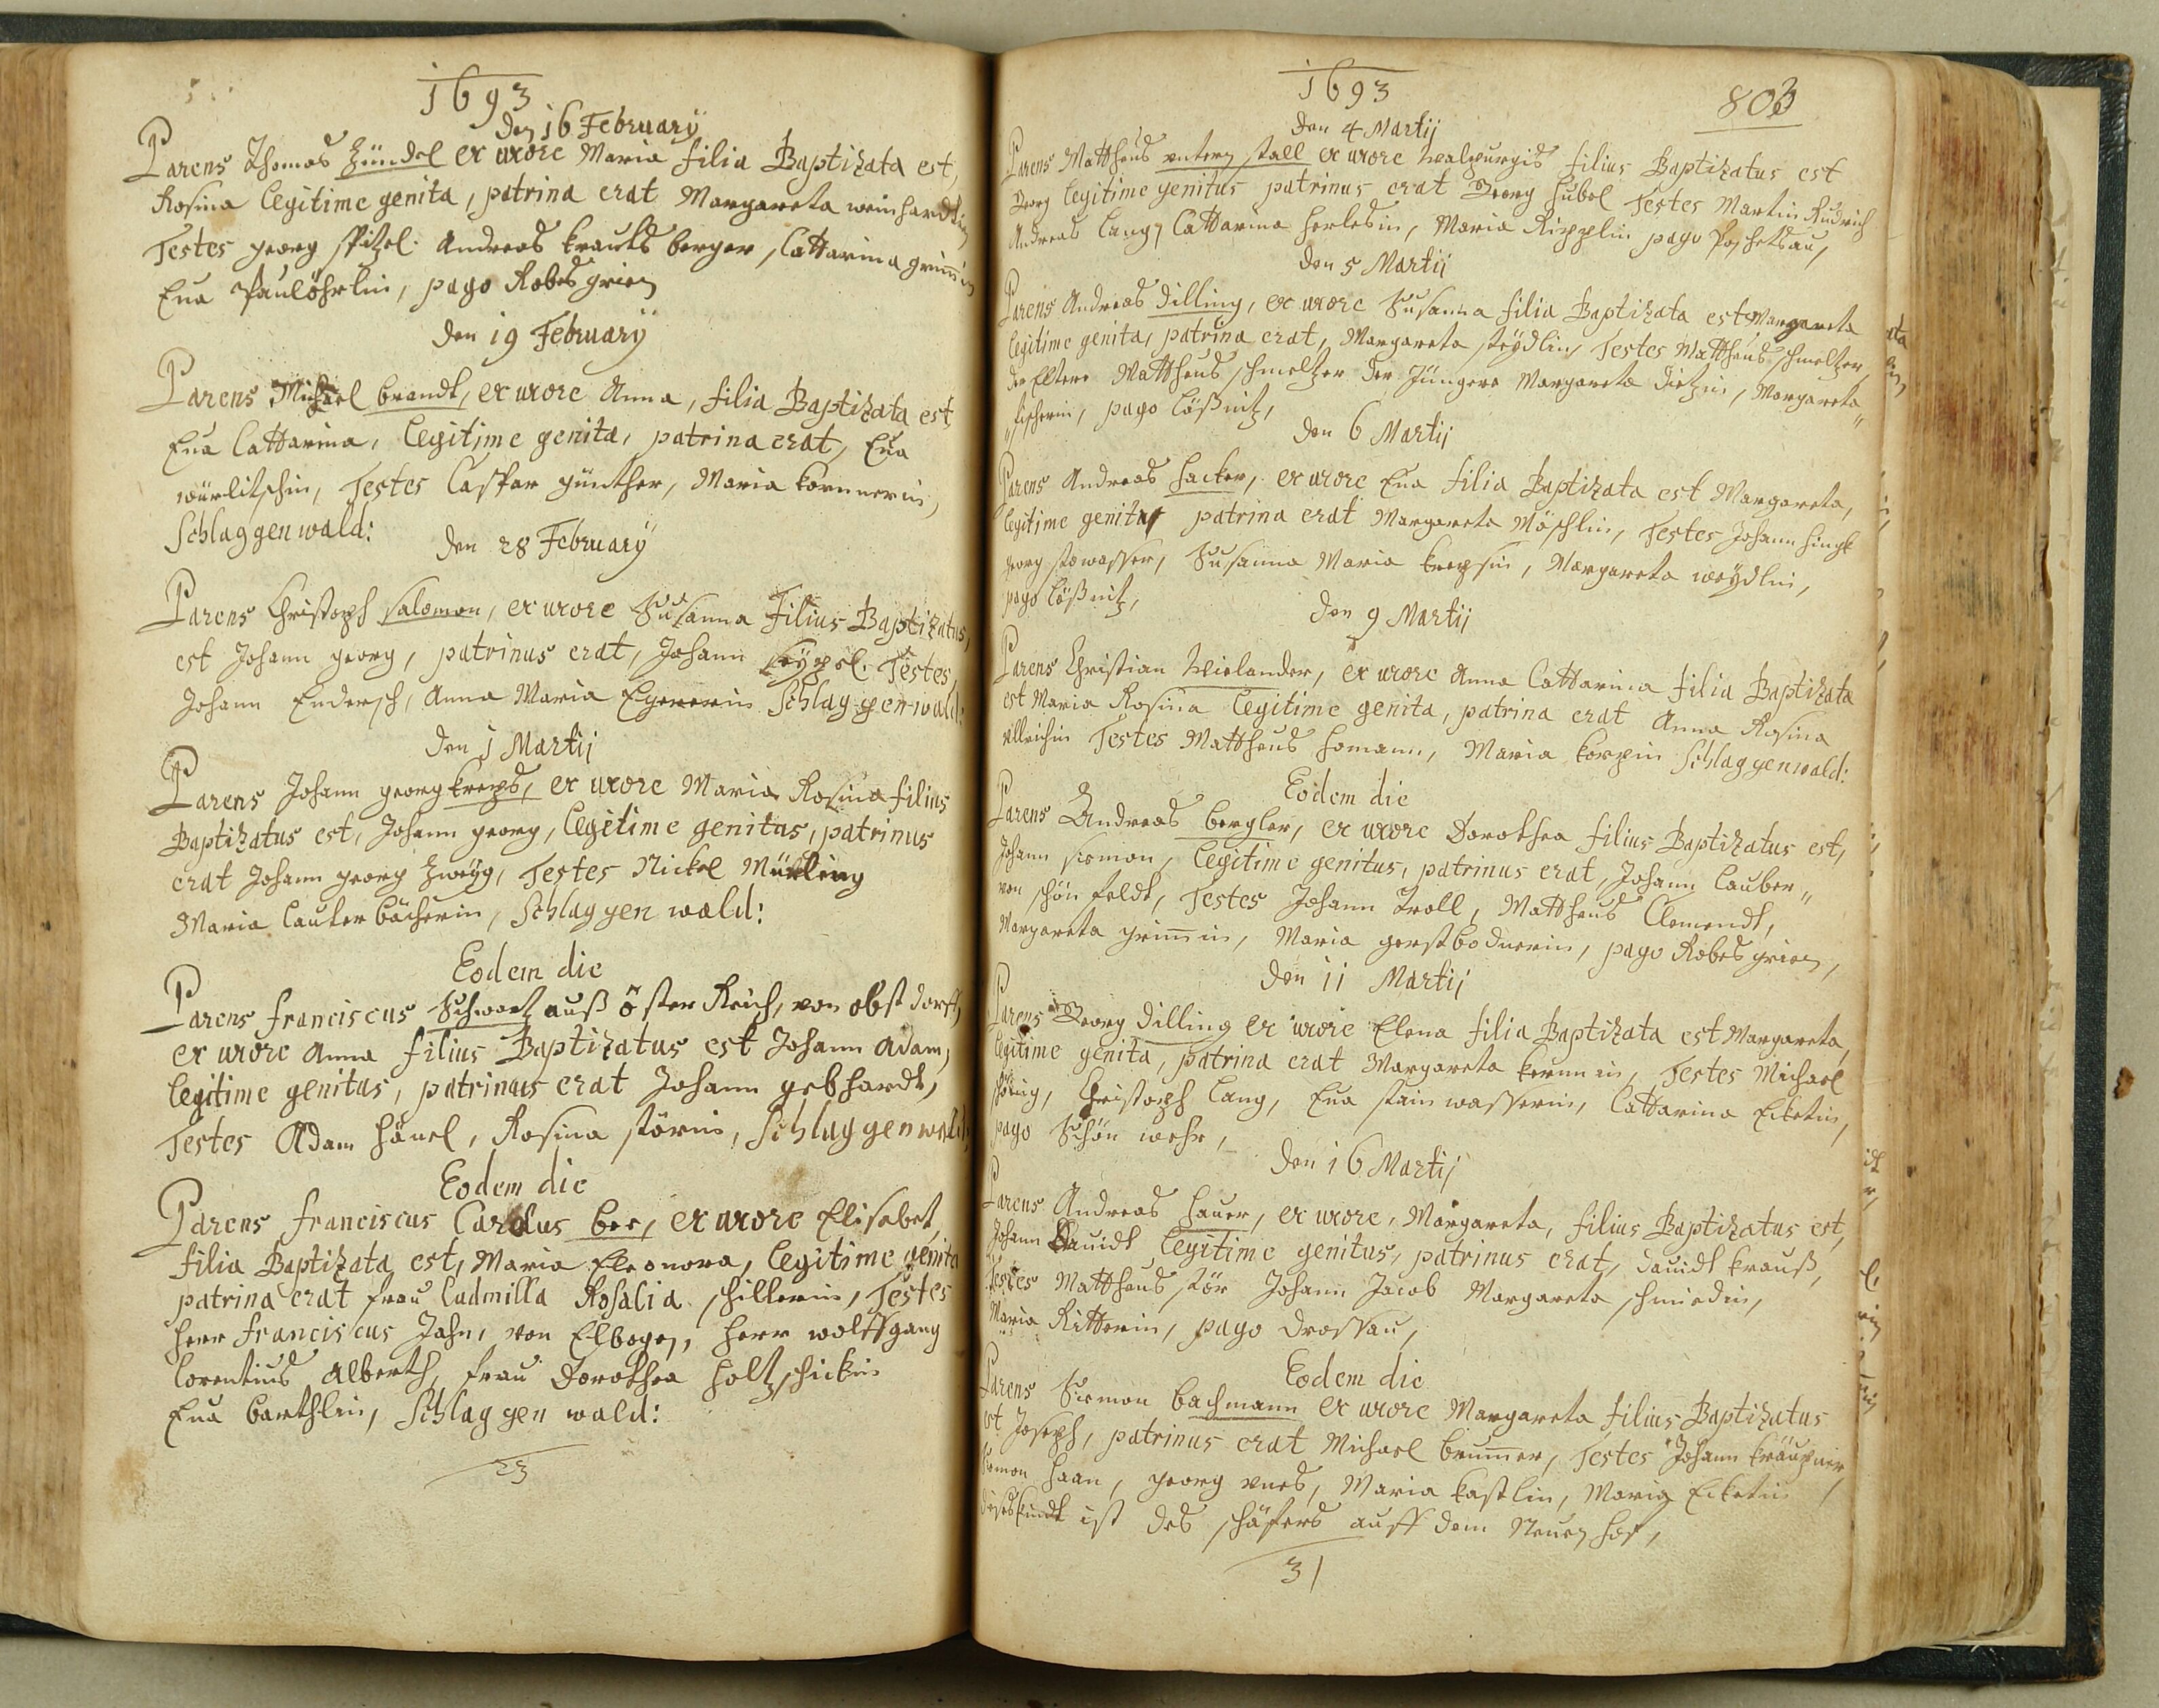 1693
Den 16 February
Parens Thomas Zündel ex uxore Maria filia Baptizata est,
Rosina legitime genita, patrina erat Margareta weinhardtin
Testes georg spitzel. Andreas krautsberger, Cattarina grim̄in
Eua Pauløhrlin, pago Robesgrien
Den 19 February
Parens Michael brandt, ex uxore Anna, filia Baptizata est,
Eua Cattarina, legitime genita, patrina erat, Eua
würlitschin, Testes Caspar günther, Maria kornnerin,
Schlaggenwald:
Den 28 February
Parens Christoph salomon, ex uxore Susanna Filius Baptizatus,
est Johann georg, patrinus erat, Johann seyppel. Testes,
Johann Endersch, Anna Maria Egererin Schlaggenwald:
Den 1 Martij
Parens Johann georg kreps, ex uxore Maria Rosina filius
Baptizatus est, Johann georg, legitime genitus, patrinus
erat Johann georg zweyg, Testes Nickel Mürling
Maria lauterbächerin, Schlaggen wald:
Eodem die
Parens franciscus Schwartz auß öster Reich, von obst dorff,
ex uxore Anna filius Baptizatus est Johann Adam,
legitime genitus, patrinus erat Johann gebhardt,
Testes Adam hänel, Rosina störin, Schlaggenwald:
Eodem die
Parens franciscus Carolus ber, ex uxore Elisabet,
filia Baptizata est, Maria Eleonora, legitime genita
patrina erat frau ludmilla Rosalia schillerin, Testes
herr franciscus Jahn, von Elbogen, herr wolffgang
lorentius Alberth, frau Dorothea holtzschickin
Eua barthlin, Schlaggen wald:
23
1693
803
Den 4 Martij
Parens Mattheus vntern stall ex uxore walpurgis filius Baptizatus est
Georg legitime genitus patrinus erat Georg hübel Testes Martin Rudrich
Andreas lang, Cattarina herlesin, Maria Ripplin pago Poschetzau,
Den 5 Martij
Parens Andreas Dilling, ex uxore Susanna filia Baptizata est Margareta
legitime genita, patrina erat, Margareta steydlin, Testes Mattheus schmeltzer,
der Eltere Mattheus schmeltzer der Jüngere Margareta Dietzin, Margareta"
"fischerin, pago lößnitz,
Den 6 Martij
Parens Andreas hacker, ex uxore Eua filia Baptizata est Margareta,
legitime genita, patrina erat Margareta Möschlin, Testes Johann hingk
georg stowasser, Susanna Maria krepsin, Margareta weydlin,
pago lößnitz,
Den 9 Martij
Parens Christian Wielander, ex uxore Anna Cattarina filia Baptizata
est Maria Rosina legitime genita, patrina erat Anna Rosina
Ullrichin Testes Mattheus homann, Maria korpin Schlaggenwald:
Eodem die
Parens Andreas bergler, ex uxore Dorothea filius Baptizatus est,
Johann siemon, legitime genitus, patrinus erat, Johann lauber"
von schönfeldt, Testes Johann Troll, Mattheus Clementdt,
Margareta grim̄in, Maria gerstbodnerin, pago Robesgrien,
Den 11 Martij
Parens Georg Dilling ex uxore Elena filia Baptizata est Margareta,
legitime genita, patrina erat Margareta kernnin, Testes Michael
Christoph lang, Eua stainwasserin, Cattarina Eckertin,
pago Schön wehr,
Den 16 Martij
Parens Andreas hauer, ex uxore, Margareta, filius Baptizatus est,
Johann Dauidt legitime genitus, patrinus erat, Dauidt krauß,
Testes Mattheus stör Johann Jacob Margareta schmiedin,
Maria Ritterin, pago Drossau,
Eodem die
Parens Siemon bachmann ex uxore Margareta filius Baptizatus
est Joseph, patrinus erat Michael brum̄er, Testes Johann
Siemon haan, georg Maria kastlin, Maria Eckertin
Dieses kindt ist des schäfers auff dem Neuen hof,
31